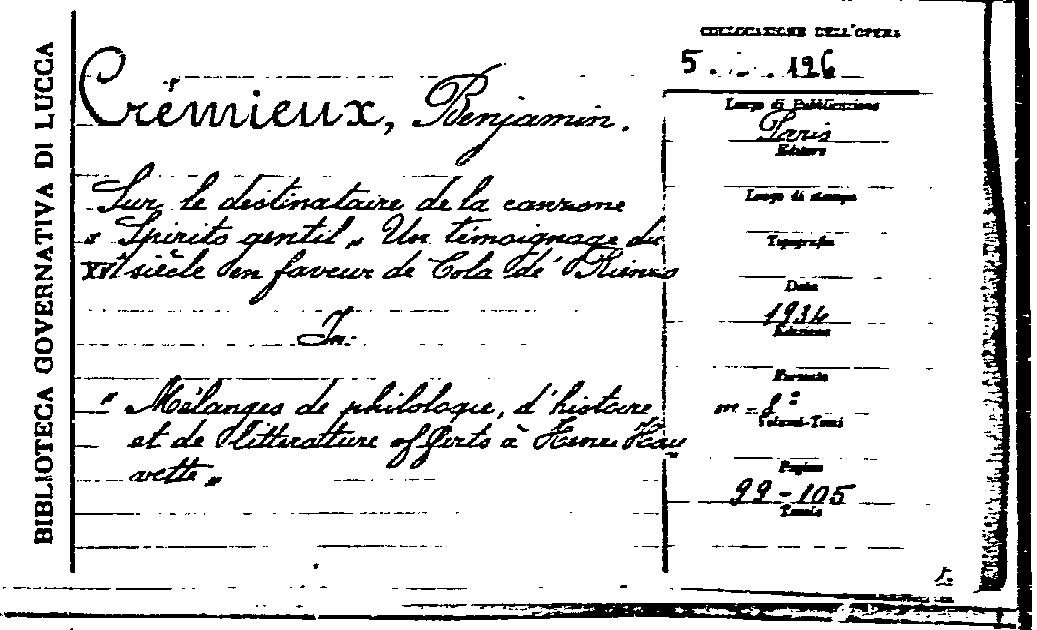 BIBLIOTECA GOVERNATIVA DI LUCCA
Crémieux, Benjamin.
Sur le destinataire de la canzone
"Spirito gentil" Un témoignage du
XVIe siècle en faveur de Cola de' Rienzo
In:
"Mélanges de philologie, d'histoire
et de littérature offerts à Henri Hau-
vette"
COLLOCAZIONE DELL'OPERA
5. . . 126
Luogo di Pubblicazione
Paris
Editore
Luogo di stampa
Tipografia
Data
1934
Edizione
Formato
in-8°
Volumi-Tomi
Pagine
99-105